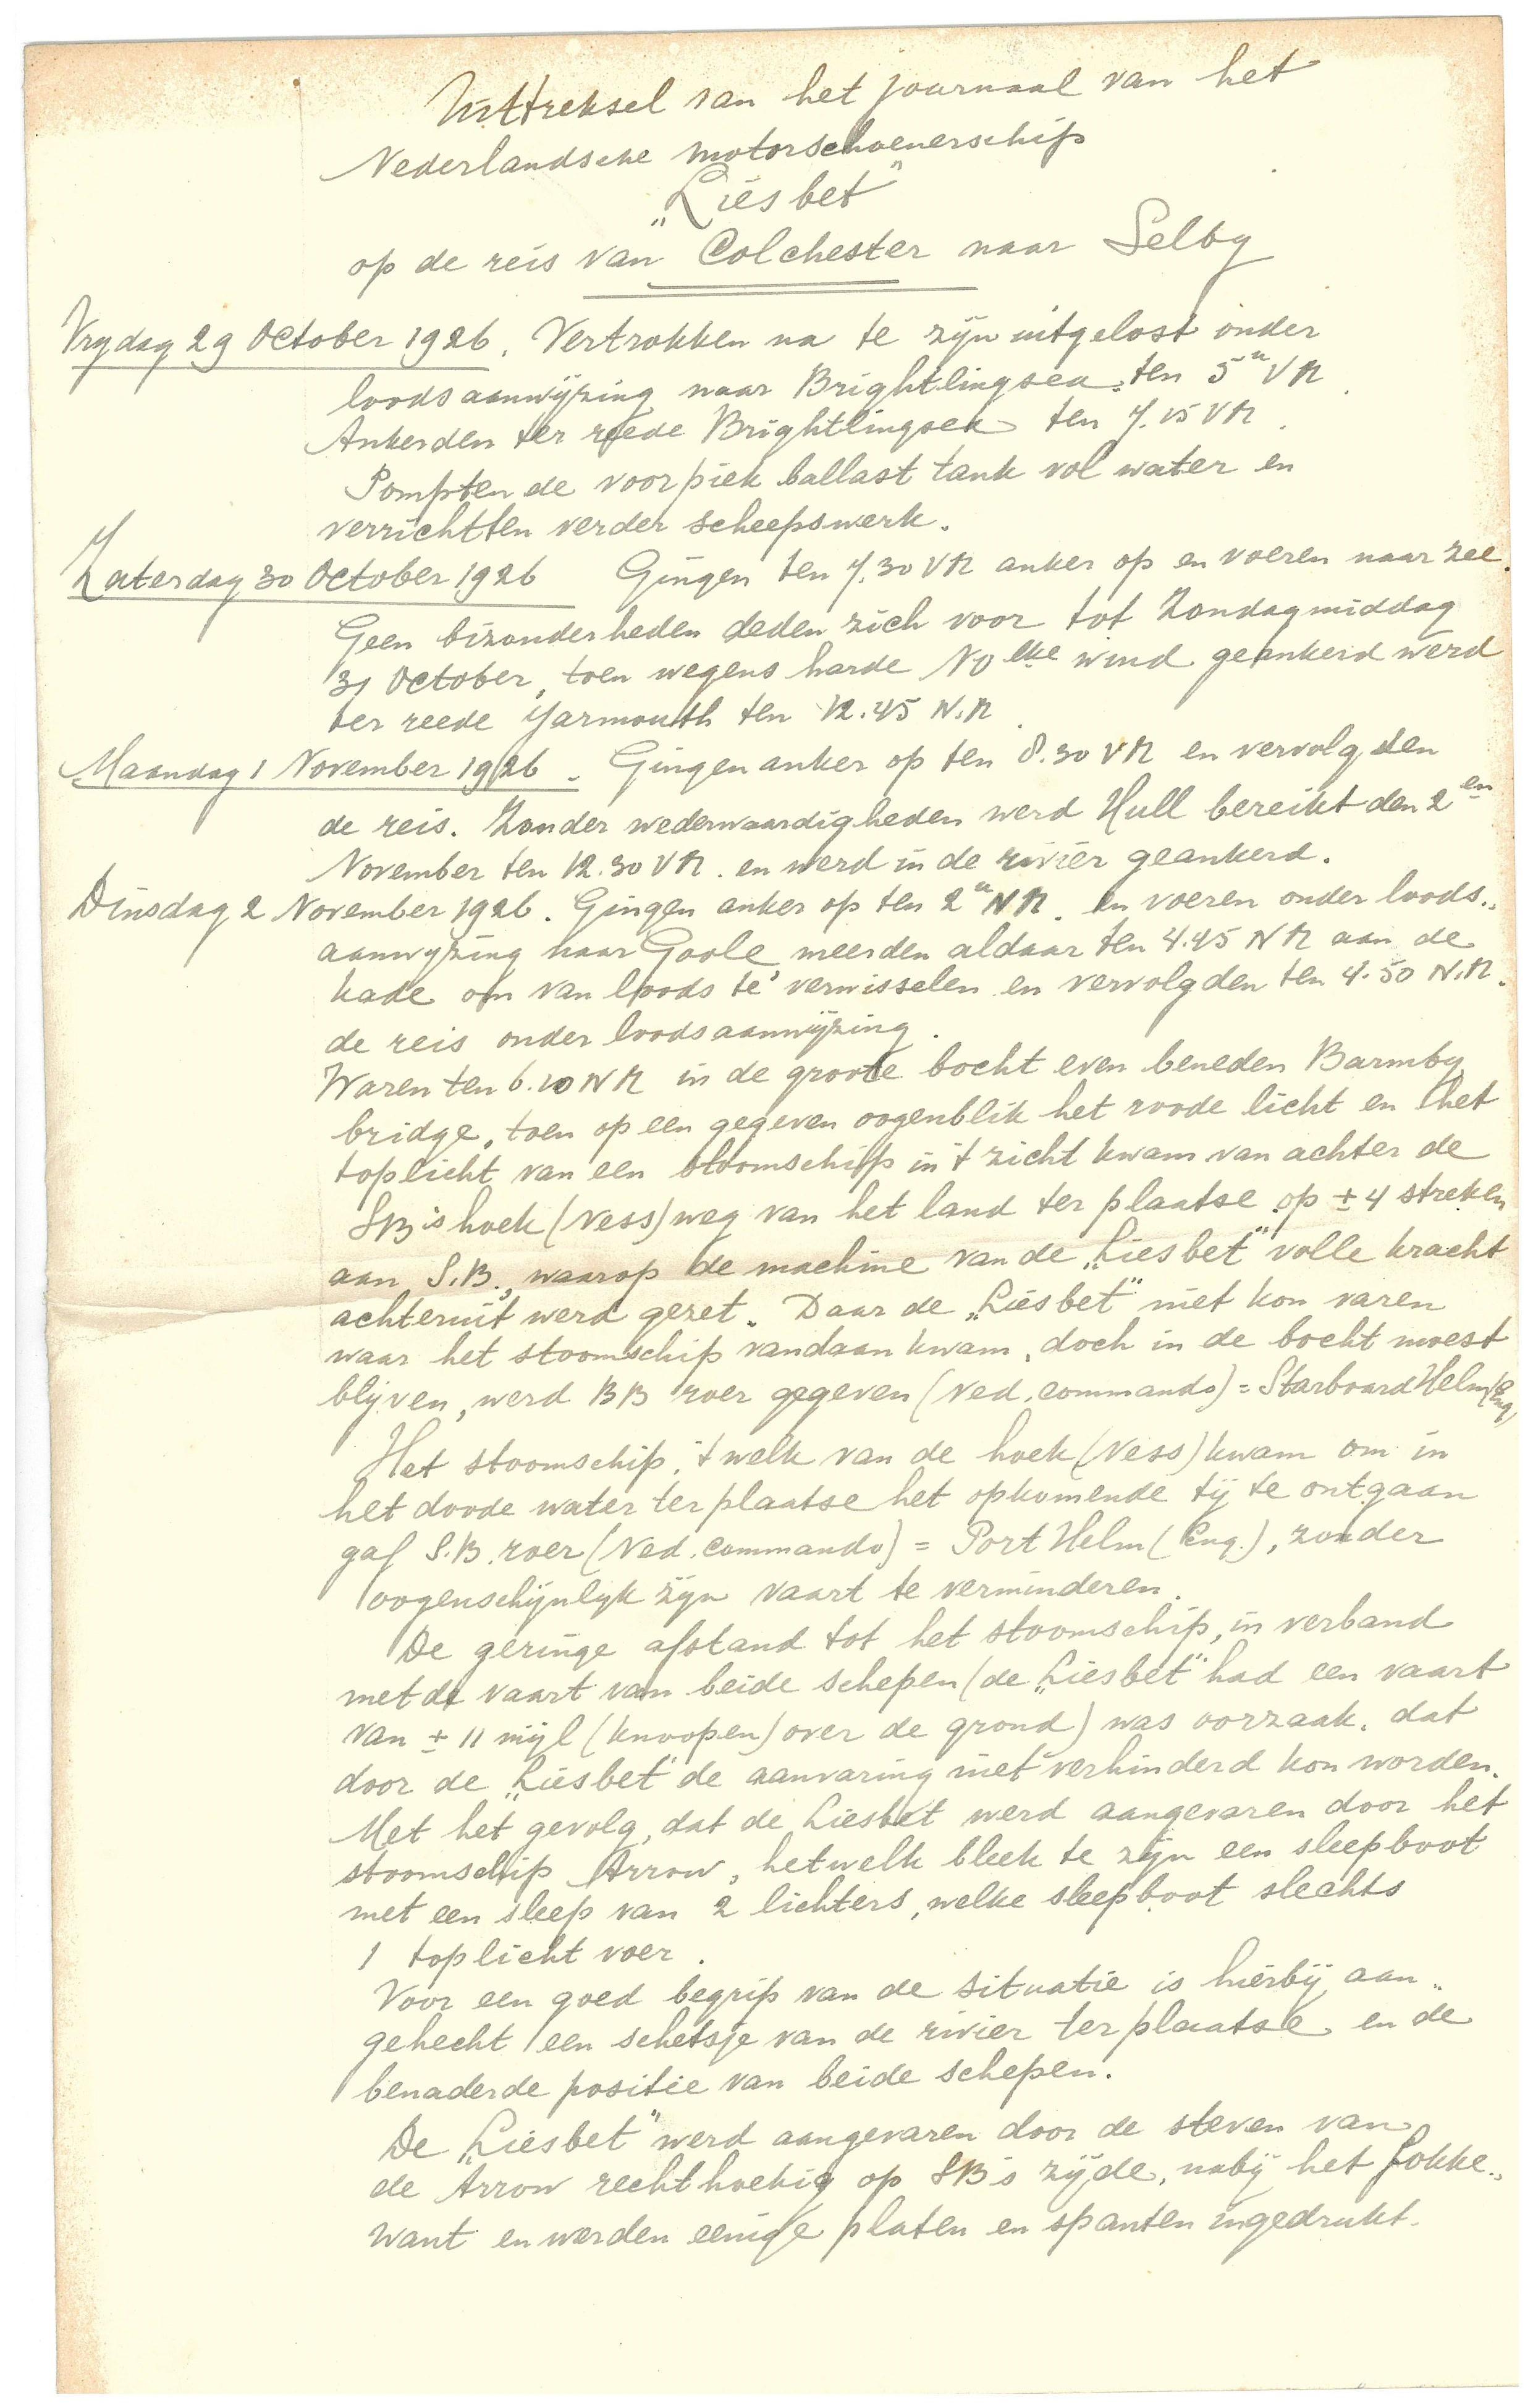 Uittreksel van het journaal van het
Nederlandsche motorschoenerschip
„Liesbet"
op de reis van Colchester naar Selby
Vrydag 29 October 1926. Vertrokken na te zijn uitgelost onder
loodsaanwijzing naar Brightlingsea ten 5u VM.
Ankerden ter reede Brightlingsea ten 7.15 VM.
Pompten de voorpiek ballast tank vol water en
verrichtten verder scheepswerk.
Zaterdag 30 October 1926 Gingen ten 7.30 VM anker op en voeren naar zee.
Geen bizonderheden deden zich voor tot Zondagmiddag
31 October, toen wegens harde NOelke wind geankerd werd
ter reede Yarmouth ten 12.45 N.M.
Maandag 1 November 1926. Gingen anker op ten 8.30 VM en vervolgden
de reis. Zonder wederwaardigheden werd Hull bereikt den 2en
November ten 12.30 VM. en werd in de rivier geankerd.
Dinsdag 2 November 1926. Gingen anker op ten 2u NM. en voeren onder loods-
aanwyzing naar Goole meerden aldaar ten 4.45 NM aan de
kade om van loods te verwisselen en vervolgden ten 4.50 N.M.
de reis onder loodsaanwijzing.
Waren ten 6.10 NM in de groote bocht even beneden Barmby
bridge, toen op een gegeven oogenblik het roode licht en het
toplicht van een stoomschip in 't zicht kwam van achter de
SB's hoek (Ness) weg van het land ter plaatse op ± 4 streken
aan S.B., waarop de machine van de „Liesbet" volle kracht
achteruit werd gezet. Daar de „Liesbet" niet kon varen
waar het stoomschip vandaan kwam, doch in de bocht moest
blyven, werd BB roer gegeven (Ned. commando) = Starboard Helm (Eng)
Het stoomschip, 't welk van de hoek (Ness) kwam om in
het doode water ter plaatse het opkomende tij te ontgaan
gaf S.B. roer (Ned. commando) = Port Helm (Eng.), zonder
oogenschijnlyk zijn vaart te verminderen.
De geringe afstand tot het stoomschip, in verband
met de vaart van beide schepen (de „Liesbet" had een vaart
van ± 11 mijl (knoopen) over de grond) was oorzaak, dat
door de „Liesbet" de aanvaring niet verhinderd kon worden.
Met het gevolg, dat de Liesbet werd aangevaren door het
stoomschip Arrow, hetwelk bleek te zijn een sleepboot
met een sleep van 2 lichters, welke sleepboot slechts
1 toplicht voer.
Voor een goed begrip van de situatie is hierbij aan-
gehecht een schetsje van de rivier ter plaatse en de
benaderde positie van beide schepen.
De „Liesbet" werd aangevaren door de steven van
de Arrow rechthoekig op SB's zijde, nabij het fokke-
want en werden eenige platen en spanten ingedrukt.